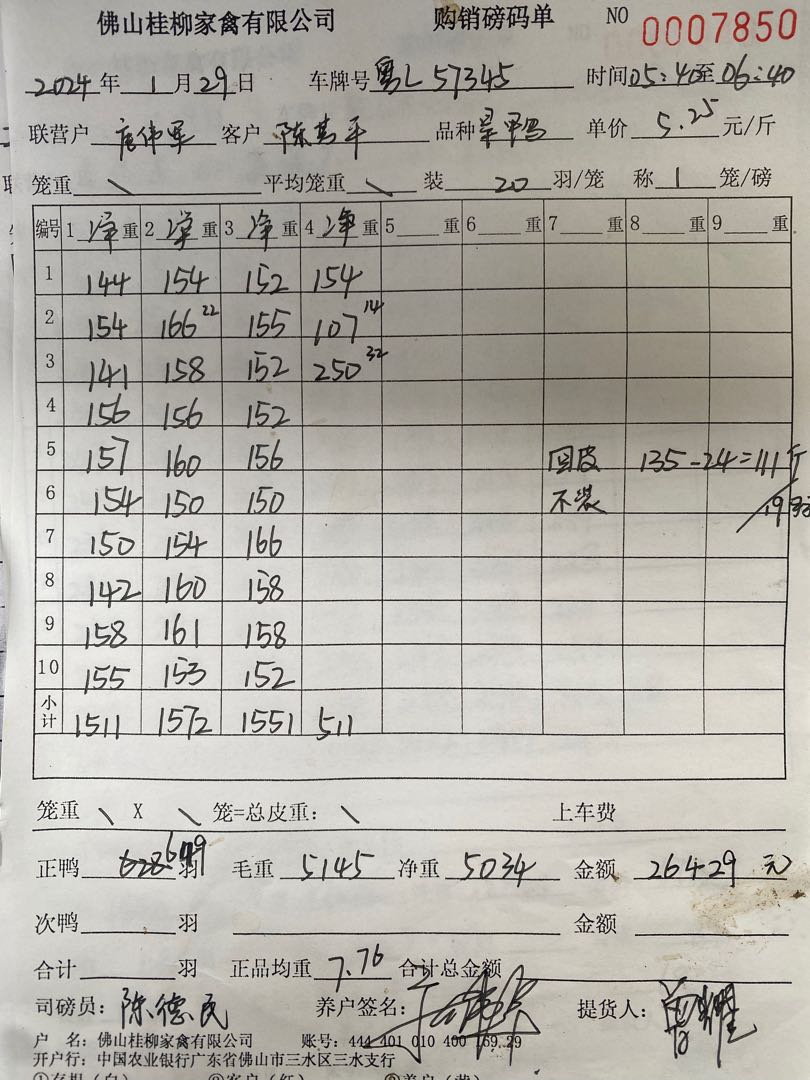 佛山桂柳家禽有限公司 购销磅码单 NO 0007850
2024年 1月29日 车牌号 粤L57345 时间05:40至06:40
联营户 客户 品种 单价 5.25 元/斤
笼重 \ 平均笼重 \ 装 20 羽/笼 称 1 笼/磅
编号 1 净 重 2 净 重 3 净 重 4 净 重 5 重 6 重 7 重 8 重 9 重
1 144 154 152 154
2 154 166 22 155 107 14
3 141 158 152 250 32
4 156 156 152
5 157 160 156 回皮 135-24=111斤
6 154 150 150 不装 /19羽
7 150 154 166
8 142 160 158
9 158 161 158
10 155 153 152
小计 1511 1572 1551 511
笼重 \ X \ 笼=总皮重: \ 上车费
正鸭 649 羽 毛重 5145 净重 5034 金额 26429 元
次鸭 羽 金额
合计 羽 正品均重 7.76 合计总金额
司磅员: 陈德民 养户签名: 提货人:
户 名: 佛山桂柳家禽有限公司 账号: 444 401 010 400 169 29
开户行: 中国农业银行广东省佛山市三水区三水支行
①存根(白) ②客户(红) ③养户(黄)